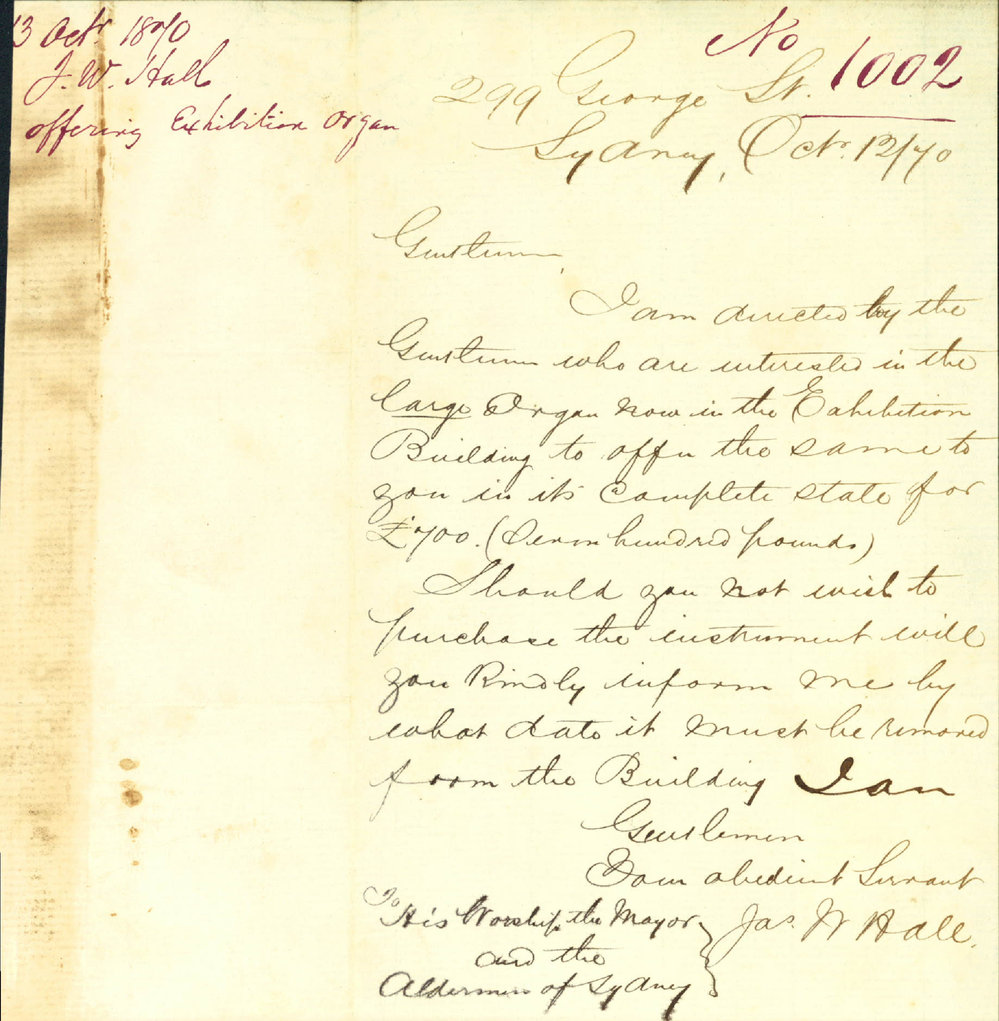 13 Octr 1870
J. W. Hall
offering Exhibition Organ
No 1002
299 George St.
Sydney, Octr. 12/70
Gentlemen,
I am directed by the
Gentlemen who are interested in the
large Organ now in the Exhibition
Building to offer the same to
you in its complete state for
£700. (Seven hundred pounds)
Should you not wish to
purchase the instrument will
you kindly inform me by
what date it must be removed
from the Building I am
Gentlemen
Your obedient Servant
Jas. W Hall.
To
His Worship the Mayor
and the
Aldermen of Sydney